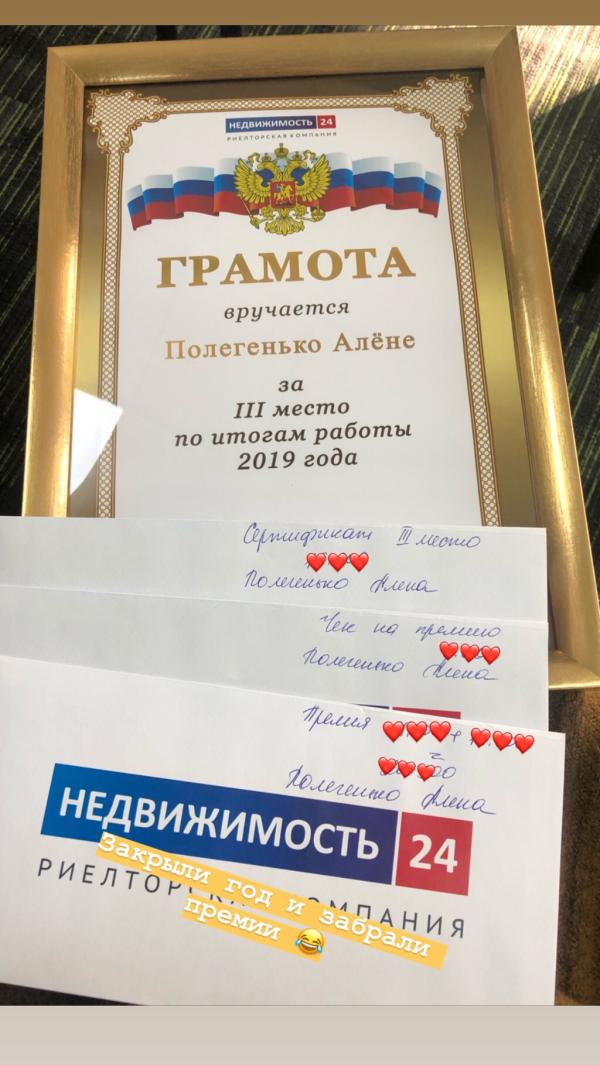 НЕДВИЖИМОСТЬ 24
РИЕЛТОРСКАЯ КОМПАНИЯ
ГРАМОТА
вручается
Полегенько Алёне
за
III место
по итогам работы
2019 года
Сертификат III место
Полегенько Алена
Чек на премию
Полегенько Алена
Премия
Полегенько Алена
НЕДВИЖИМОСТЬ 24
РИЕЛТОРСКАЯ КОМПАНИЯ
Закрыли год и забрали
премии 😂